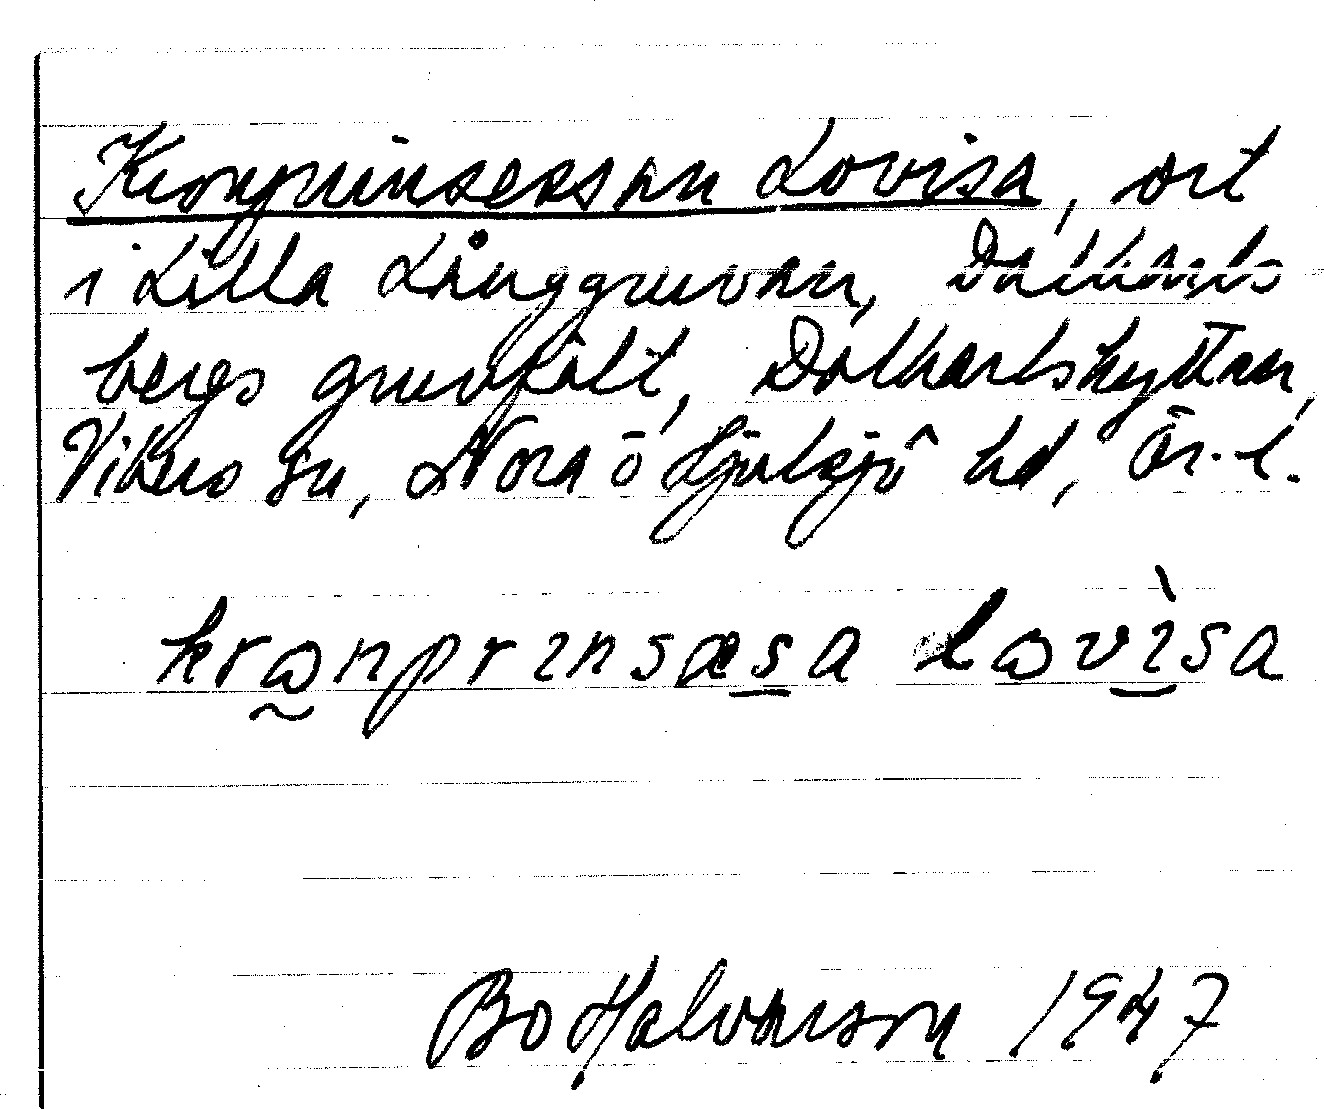 Kronprinsessan Lovisa, ort
i Lilla Långgruvan, Dalkarls
bergs gruvfält, Dalkarlshyttan,
Vikers sn, Nora o Hjulsjö hd, Ör. l.
krɷnprinsæsa lɷvìsa
Bo Halvarson 1947